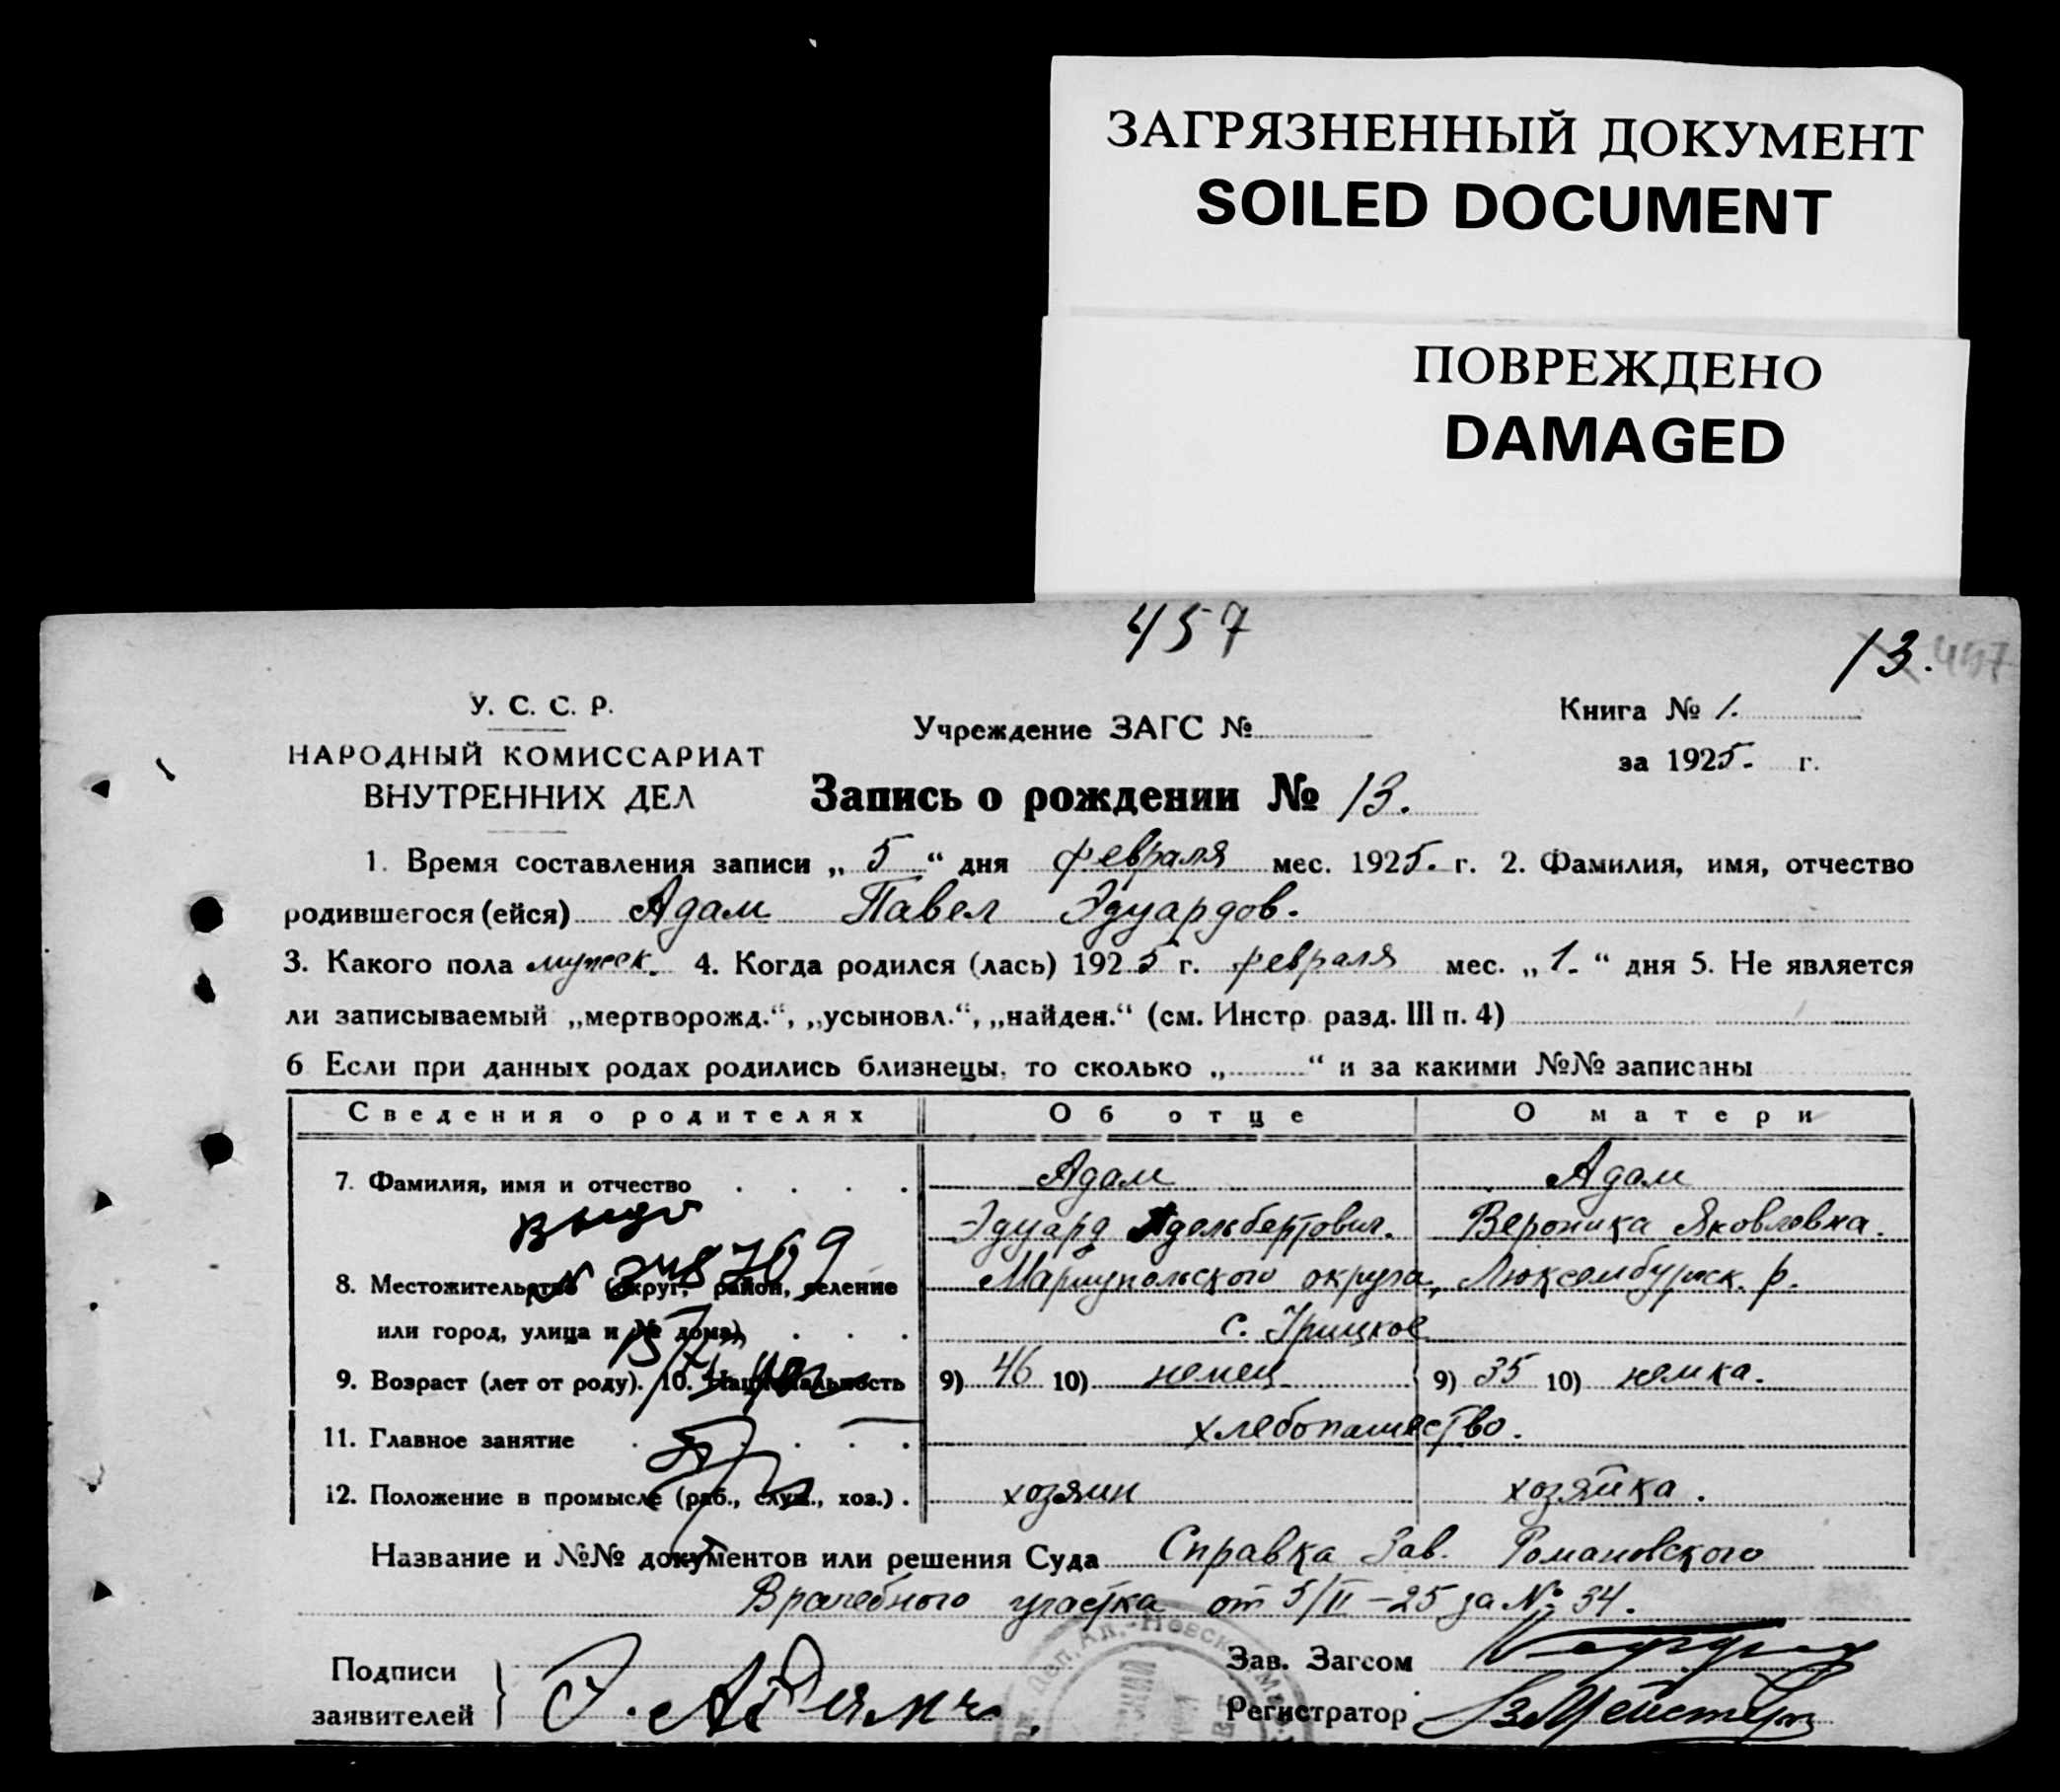 ЗАГРЯЗНЕННЫЙ ДОКУМЕНТ
SOILED DOCUMENT
ПОВРЕЖДЕНО
DAMAGED
457
13. 457
У. С. С. Р.
НАРОДНЫЙ КОМИССАРИАТ
ВНУТРЕННИХ ДЕЛ
Учреждение ЗАГС №
Книга № 1.
за 1925. г.
Запись о рождении № 13.
1. Время составления записи „ 5 “ дня февраля мес. 1925. г. 2. Фамилия, имя, отчество
родившегося (ейся) Адам Павел Эдуардов.
3. Какого пола мужск. 4. Когда родился (лась) 1925 г. февраля мес. „ 1. “ дня 5. Не является
ли записываемый „мертворожд.“, „усыновл.“, „найден.“ (см. Инстр. разд. III п. 4)
6 Если при данных родах родились близнецы, то сколько „ “ и за какими №№ записаны
Сведения о родителях Об отце О матери
7. Фамилия, имя и отчество Адам Адам
Эдуард Адельбертович. Вероника Яковлевна.
8. Местожительство (округ, район, селение Мариупольского округа, Люксембургск. р.
или город, улица и № дома) с. Урицкое
9. Возраст (лет от роду). 10. Национальность 9) 46 10) немец 9) 35 10) немка.
11. Главное занятие хлебопашество.
12. Положение в промысле (раб., служ., хоз.) хозяин хозяйка.
Название и №№ документов или решения Суда Справка Зав. Романовского
Врачебного участка от 5/II-25 за № 34.
Подписи
заявителей
Зав. Загсом
Регистратор